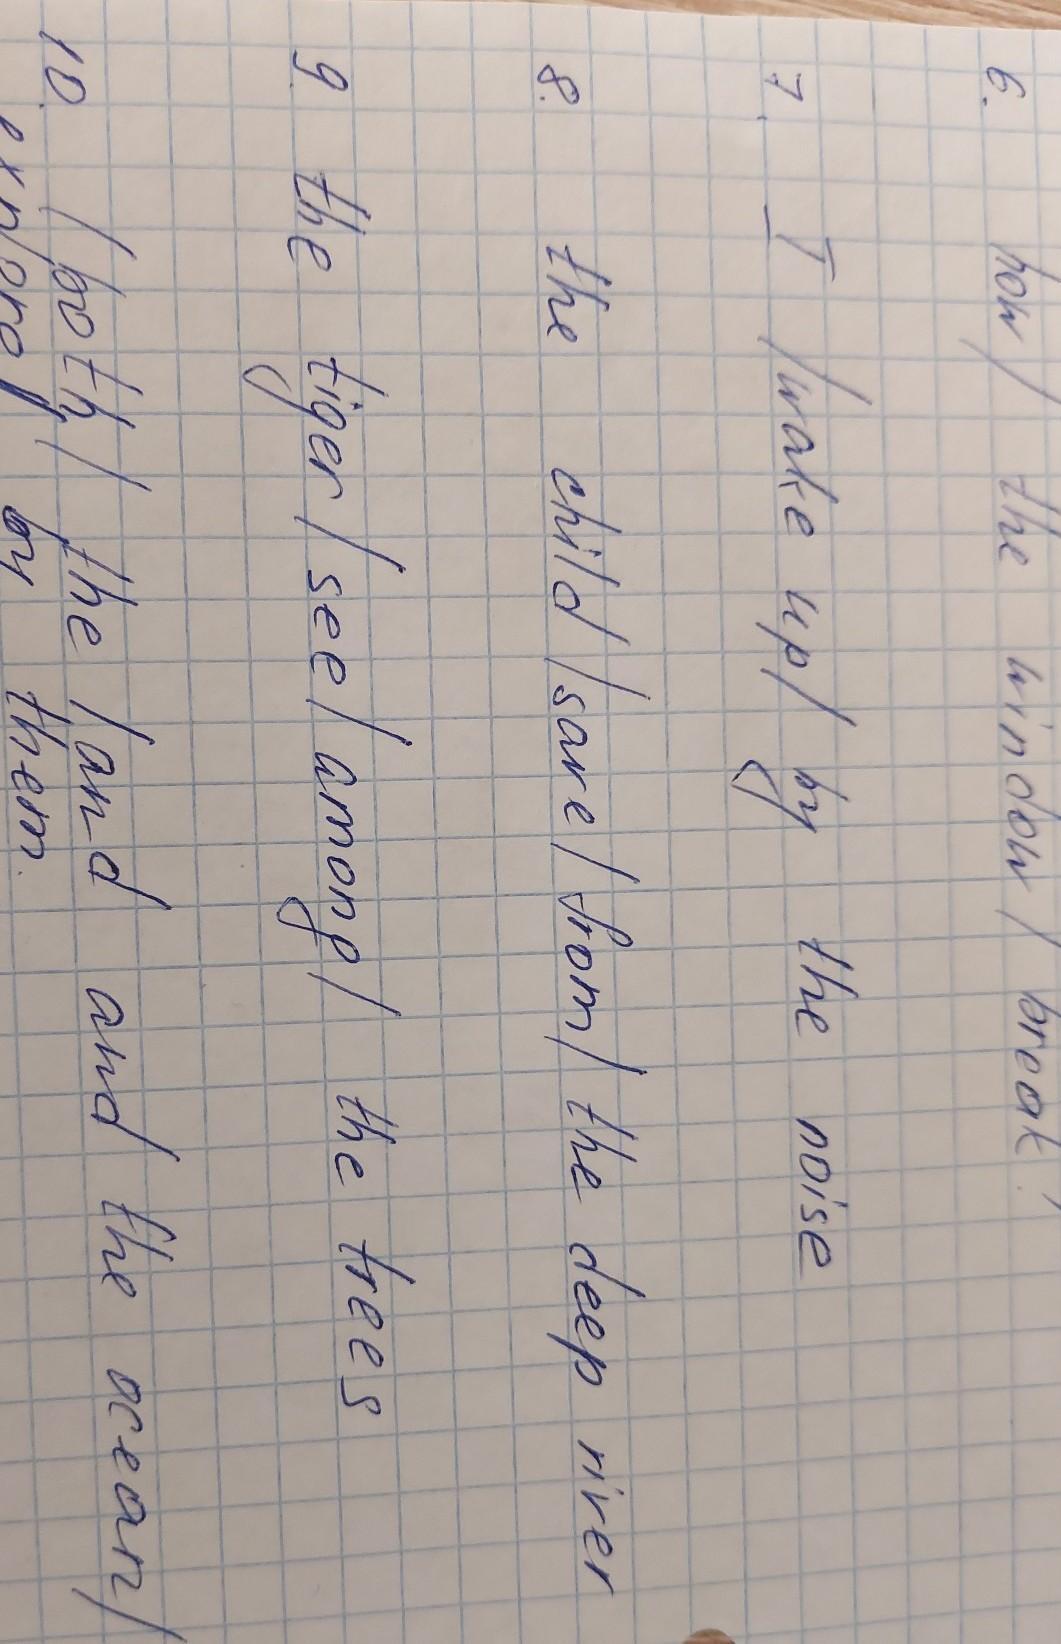 6. how / the window / break?
7. I / wake up / by the noise
8. the child / save / from / the deep river
9. the tiger / see / among / the trees
10. / both / the / and and the ocean /
explored by them.